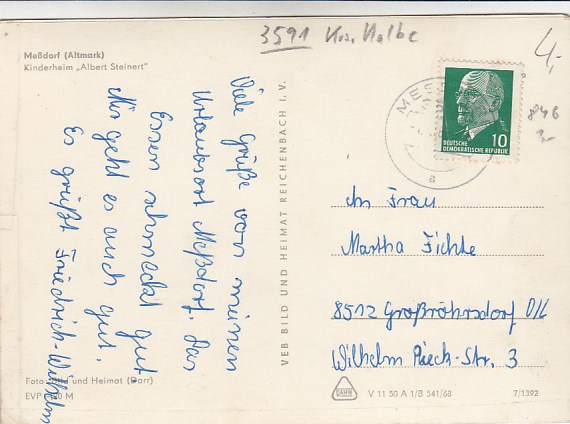 3591 Krs. Kalbe
4,-
Meßdorf (Altmark)
Kinderheim „Albert Steinert"
Viele Grüße von meinen
Urlaubsort Meßdorf. Das
Essen schmeckt gut
Mir geht es auch gut.
Es grüßt Friedrich-Wilhelm
VEB BILD UND HEIMAT REICHENBACH I. V.
MES
a
10
DEUTSCHE
DEMOKRATISCHE REPUBLIK
846
An Frau
Martha Fichte
8512 Großröhrsdorf OIL
Wilhelm Pieck-Str. 3
Foto: Bild und Heimat (Darr)
EVP M
V 11 50 A 1/B 541/68
7/1392